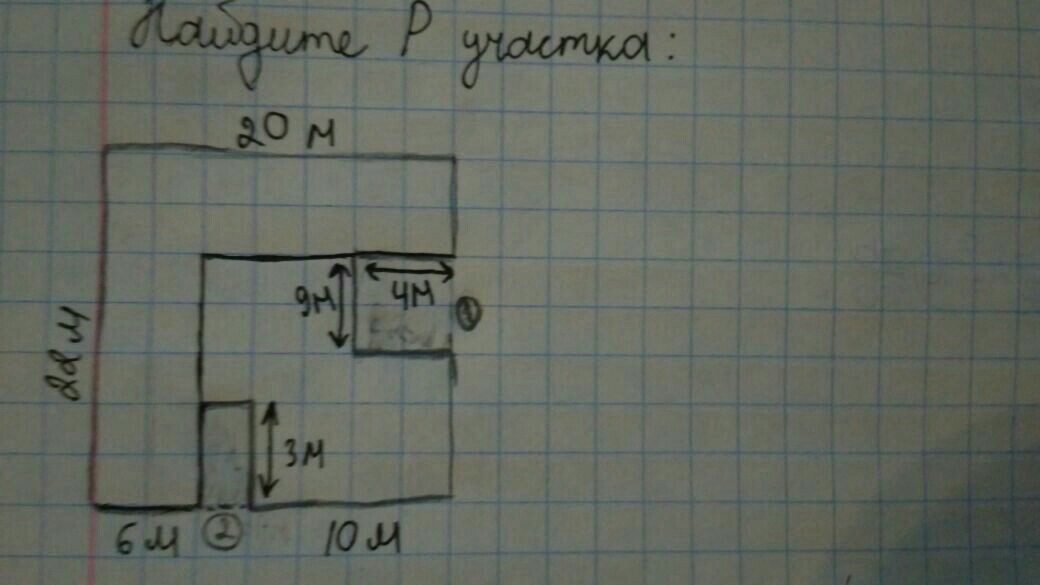 Найдите P участка:
20 м
9м
4м
1
22 м
3м
6м
2
10м